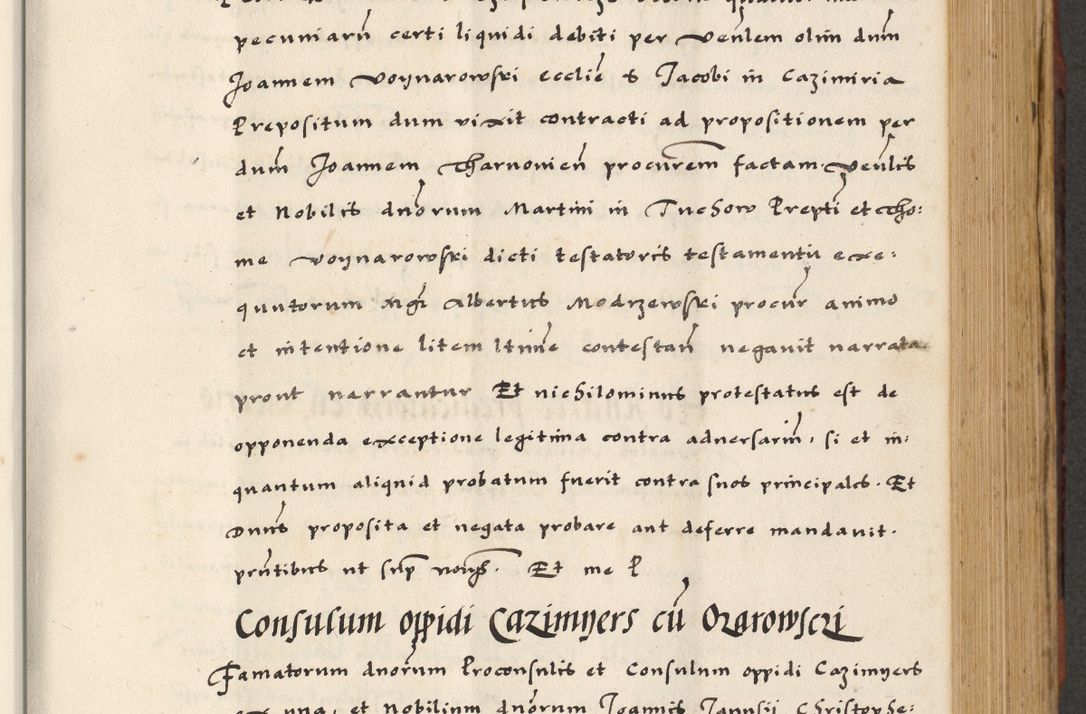 pecuniarũ certi liquidi debiti per venlem olim dum
Joannem Voynarowski ecclie s Jacobi in Cazimiria
Prepositum dum vixit contracti ad propositionem per
dum Joannem Tharnovien procurem factam. venlis
et Nobilis dnorum Martini in Tuchow Prepti et Tho:
me Voynarowski dicti testatoris testamenti exe:
qutorum Mgr Albertus Modrzewski procur animo
et intentione litem ltime contestan negavit narrata
prout narrantur Et nichilominus protestatus est de
opponenda exceptione legitima contra adversariu, si et in:
quantum aliquid probatum fuerit contra suos principales. Et
Duns proposita et negata probare aut deferre mandavit.
pntibus ut sup Et me P
Consulum oppidi Cazimyers cũ Ozarowscri
Famatorum dnorum Proconsulis et Consulum oppidi Cazimyers
ex una, et Nobilium dnorum Joannis Janusii Christophe: